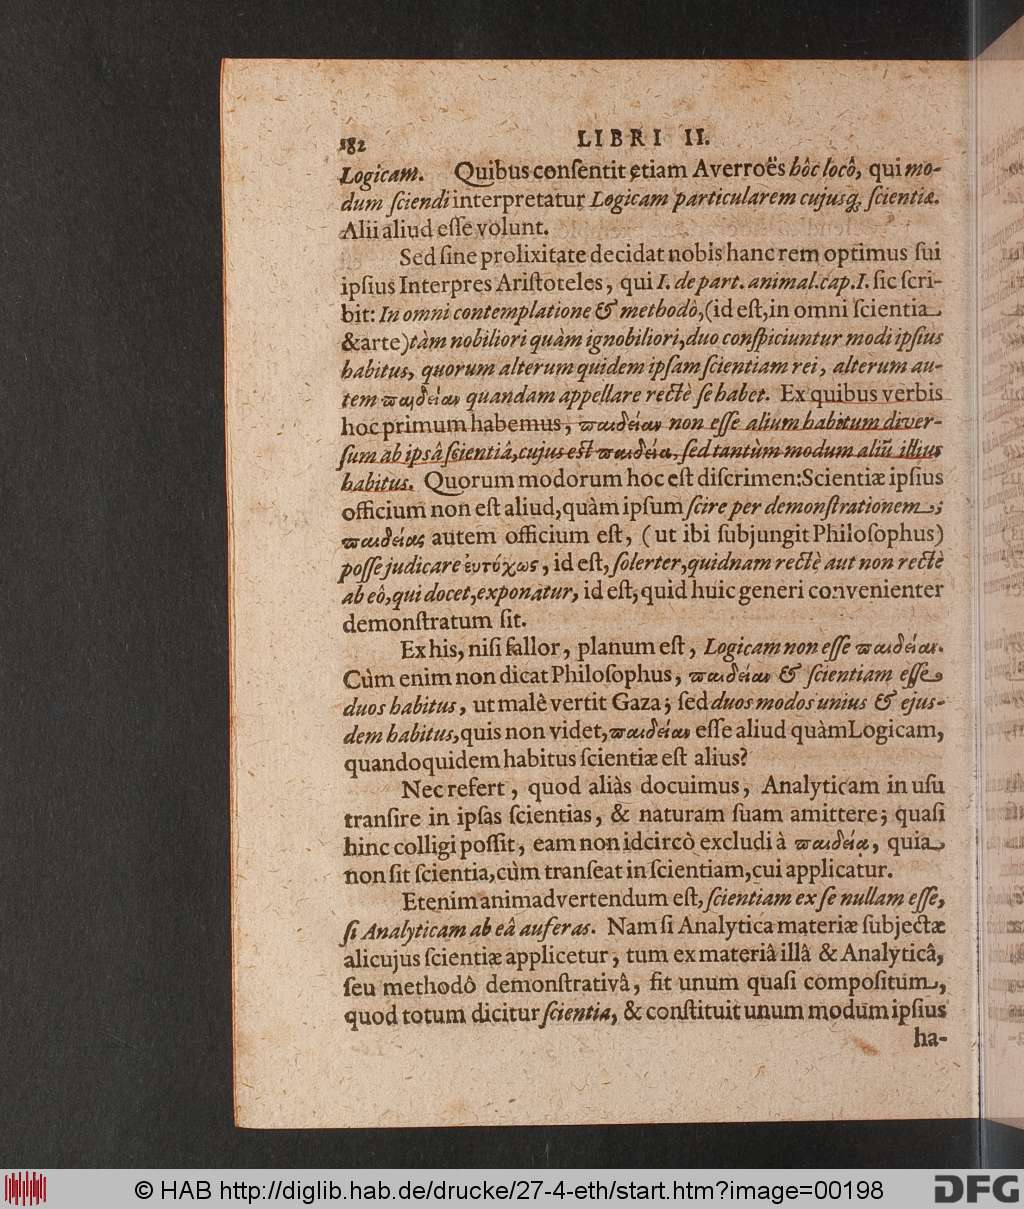 182 LIBRI II.
Logicam. Quibus conſentit etiam Averroës hôc locô, qui mo-
dum ſciendi interpretatur Logicam particularem cujusq; ſcientiæ.
Alii aliud eſſe volunt.
Sed ſine prolixitate decidat nobis hanc rem optimus ſui
ipſius Interpres Ariſtoteles, qui I. de part. animal. cap. I. ſic ſcri-
bit: In omni contemplatione & methodô, (id eſt, in omni ſcientia
& arte) tàm nobiliori quàm ignobiliori, duo conſpiciuntur modi ipſius
habitus, quorum alterum quidem ipſam ſcientiam rei, alterum au-
tem παιδείαν quandam appellare rectè ſe habet. Ex quibus verbis
hoc primum habemus, παιδείαν non eſſe alium habitum diver-
ſum ab ipsâ ſcientiâ, cujus est παιδεία, ſed tantùm modum aliũ illius
habitus. Quorum modorum hoc eſt diſcrimen: Scientiæ ipſius
officium non eſt aliud, quàm ipſum ſcire per demonſtrationem;
παιδείας autem officium eſt, (ut ibi ſubjungit Philoſophus)
poſſe judicare ἐυτύχως, id eſt, ſolerter, quidnam rectè aut non rectè
ab eô, qui docet, exponatur, id eſt, quid huic generi convenienter
demonſtratum ſit.
Ex his, niſi fallor, planum eſt, Logicam non eſſe παιδείαν.
Cùm enim non dicat Philoſophus, παιδείαν & ſcientiam eſſe
duos habitus, ut malè vertit Gaza; ſed duos modos unius & ejus-
dem habitus, quis non videt, παιδείαν eſſe aliud quàm Logicam,
quandoquidem habitus ſcientiæ eſt alius?
Nec refert, quod aliàs docuimus, Analyticam in uſu
tranſire in ipſas ſcientias, & naturam ſuam amittere; quaſi
hinc colligi poſſit, eam non idcircò excludi à παιδείᾳ, quia
non ſit ſcientia, cùm tranſeat in ſcientiam, cui applicatur.
Etenim animadvertendum eſt, ſcientiam ex ſe nullam eſſe,
ſi Analyticam ab eâ auferas. Nam ſi Analytica materiæ ſubjectæ
alicujus ſcientiæ applicetur, tum ex materiâ illâ & Analyticâ,
ſeu methodô demonſtrativâ, fit unum quaſi compoſitum,
quod totum dicitur ſcientia, & conſtituit unum modum ipſius
ha-
© HAB http://diglib.hab.de/drucke/27-4-eth/start.htm?image=00198 DFG